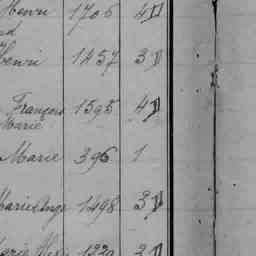 Henri 1706 4 D
nd
Henri 1457 3 D
François 1595 4 D
Marie
Marie 396 1
Marie Ange 1498 3 D
Marie 1220 3 D